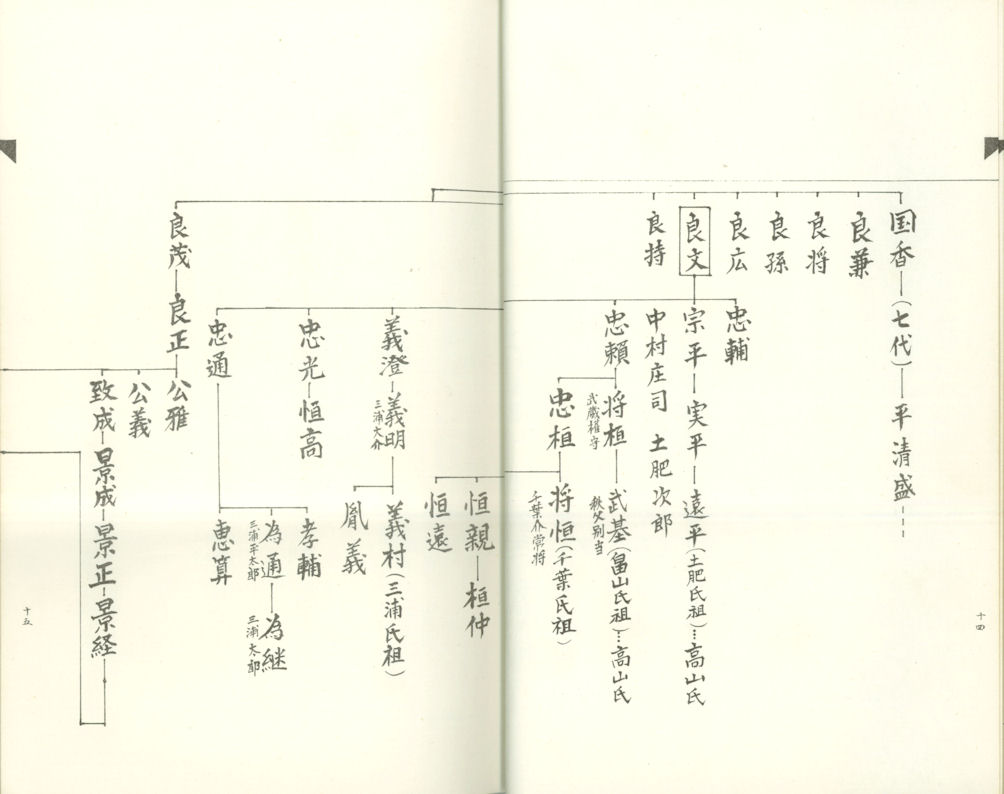 国香―(七代)―平清盛
良兼
良将
良孫
良広
良文
良持
忠輔
宗平―実平―遠平(土肥氏祖)…高山氏
中村庄司 土肥次郎
忠頼
将桓―武基(畠山氏祖)…高山氏
武蔵権守 秩父別当
忠桓―将恒(千葉氏祖)
千葉介常将
恒親―桓仲
恒遠
義澄―義明―義村(三浦氏祖)
三浦大介
胤義
忠光―恒高
忠通
孝輔
為通―為継
三浦平太郎 三浦太郎
恵算
良茂―良正―公雅
公義
致成―景成―景正―景経
十四
十五